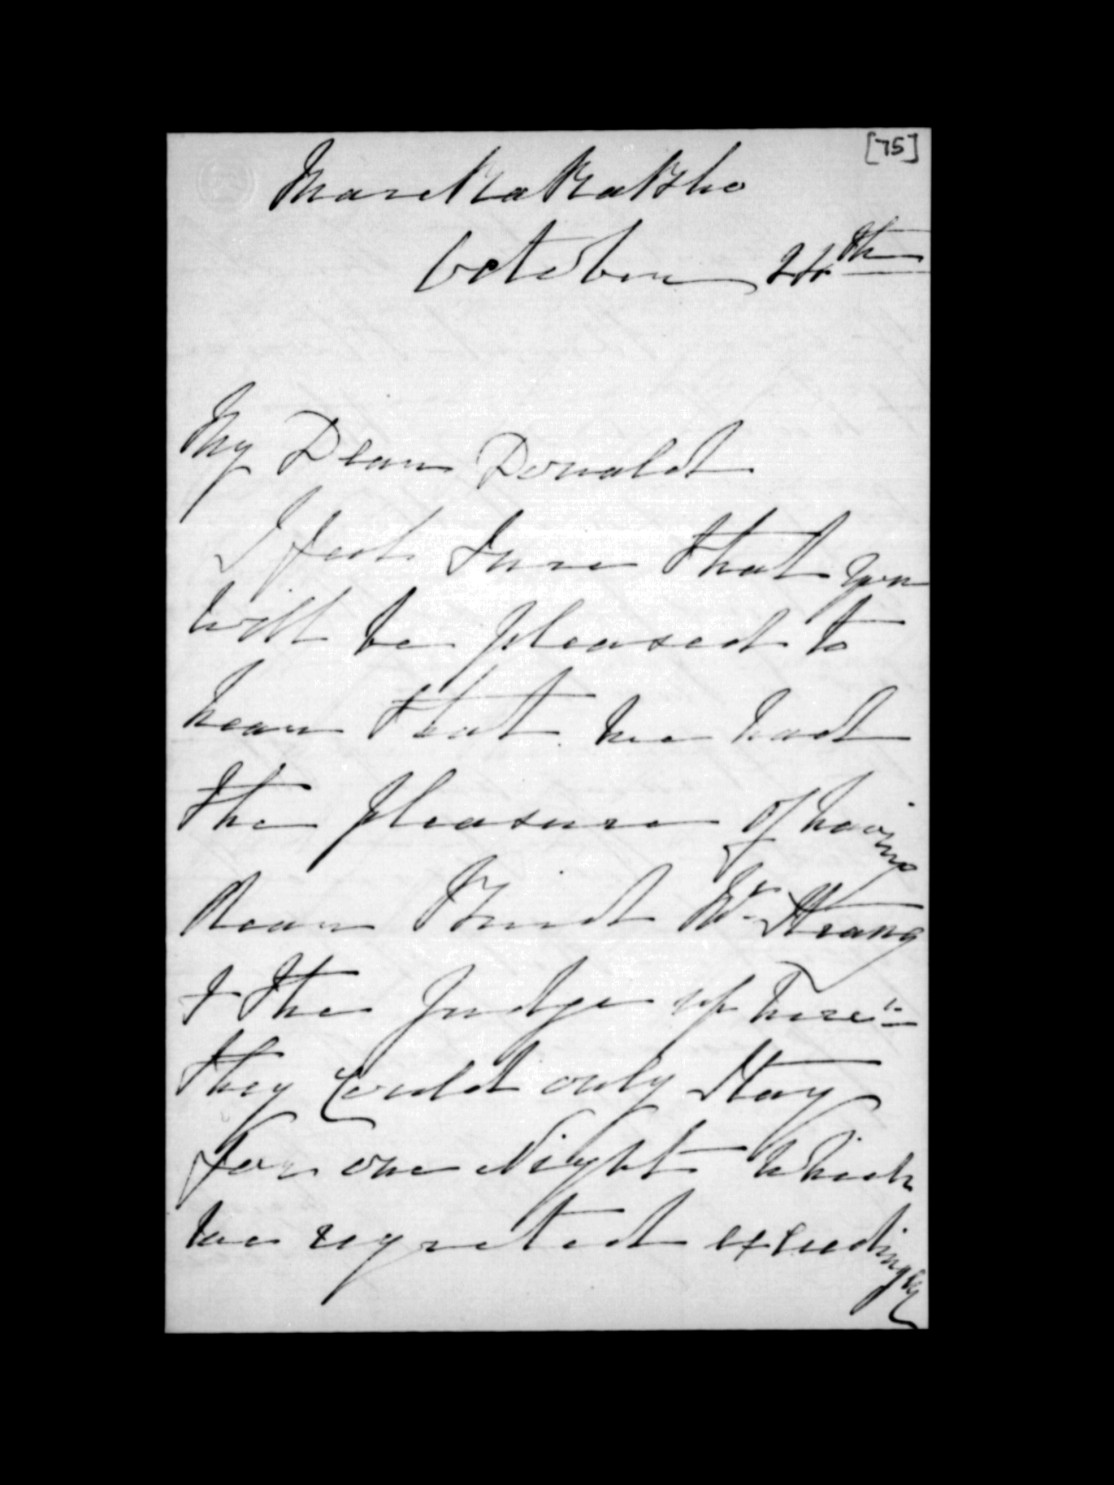 [75]
Marekakaho
October 24th
My Dear Donald
I feel sure that you
will be pleased to
hear that we had
the pleasure of having
dear Bird Mr Strang
& the Judge up here "
they could only stay
for one Night which
we regreted exceedingly